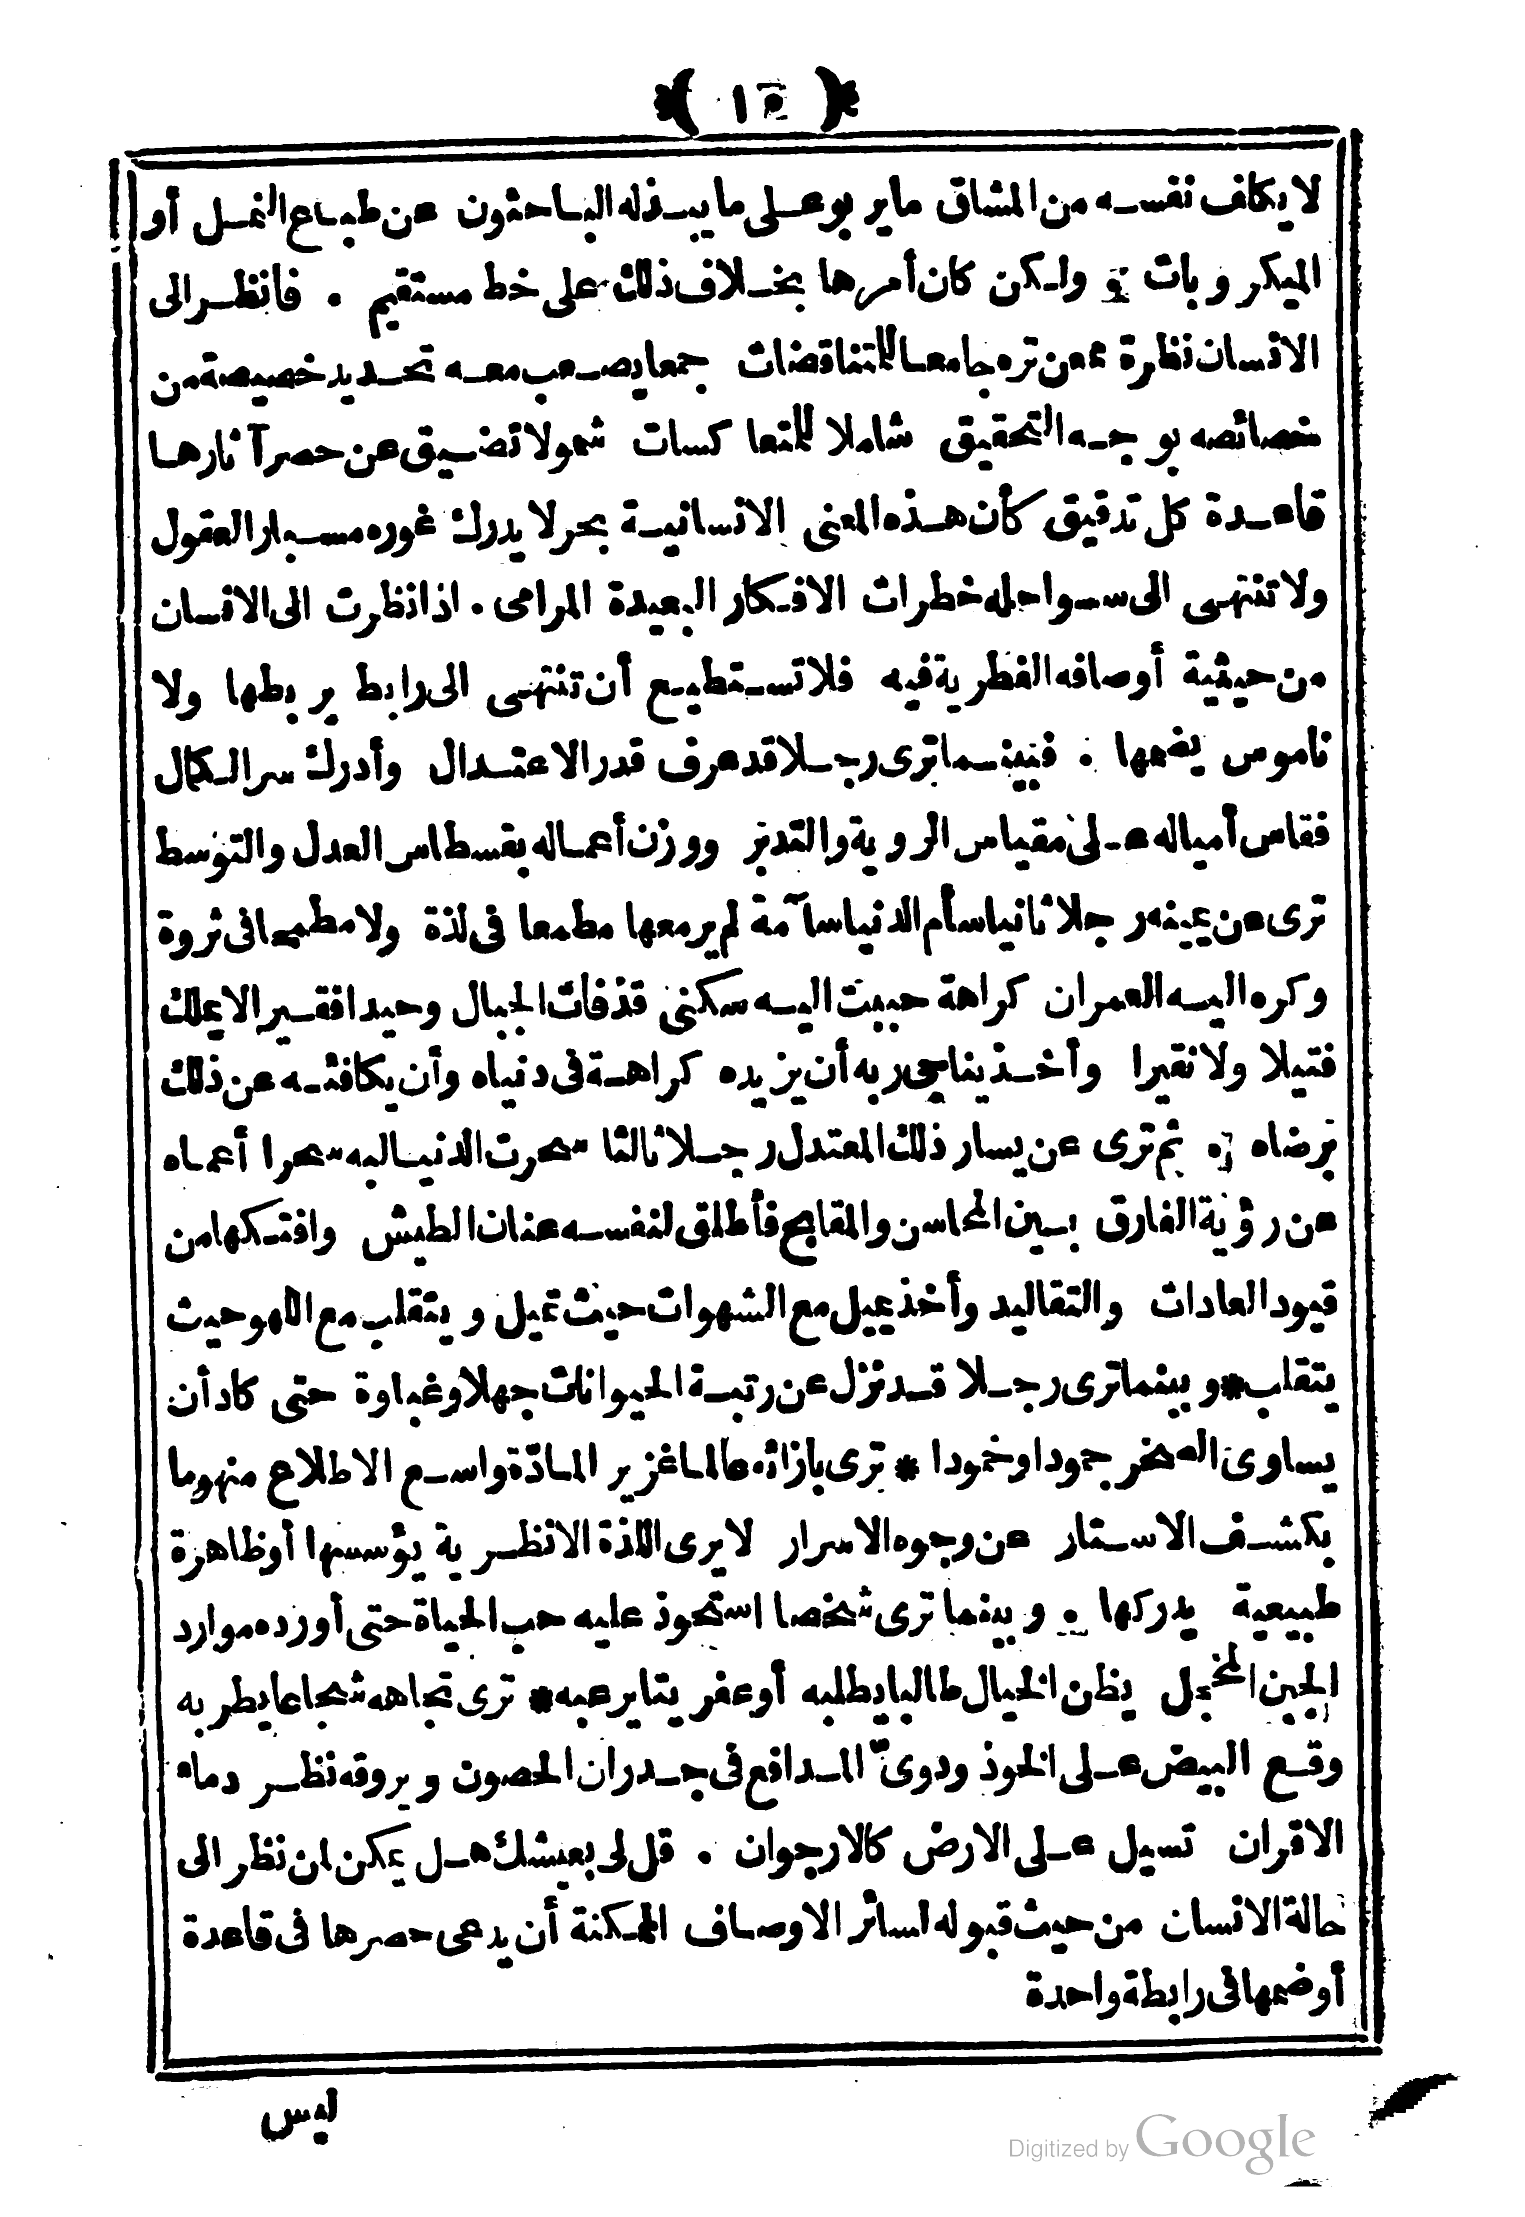 ﴿ ١٥ ﴾
لا يكلف نفسه من المشاق ما يربو على ما يبذله الباحثون عن طباع النمل أو
الميكروبات و ولكن كان أمرها بخلاف ذلك على خط مستقيم . فانظر الى
الانسان نظرة ممعن تره جامعا للمتناقضات جمعا يصعب معه تحديد خصيصة من
خصائصه بوجه التحقيق شاملا للمتعاكسات شمولا تضيق عن حصر آثارها
قاعدة كل تدقيق كأن هذه المعنى الانسانية بحر لا يدرك غوره مسبار العقول
ولا تنتهى الى سواحله خطرات الافكار البعيدة المرامى . اذا نظرت الى الانسان
من حيثية أوصافه الفطرية فيه فلا تستطيع أن تنتهى الى رابط يربطها ولا
ناموس يضمها . فبينما ترى رجلا قد عرف قدر الاعتدال وأدرك سر الكمال
فقاس أمياله على مقياس الروية والتدبر ووزن أعماله بقسطاس العدل والتوسط
ترى عن يمينه رجلا ثانيا سأم الدنيا سآمة لم ير معها مطمعا فى لذة ولا مطمعا فى ثروة
وكره اليه العمران كراهة حببت اليه سكنى قذفات الجبال وحيدا فقيرا لا يملك
فتيلا ولا نقيرا وأخذ يناجى ربه أن يزيده كراهة فى دنياه وأن يكافئه عن ذلك
برضاه ثم ترى عن يسار ذلك المعتدل رجلا ثالثا سحرت الدنيا لبه سحرا أعماه
عن رؤية الفارق بين المحاسن والمقابح فأطلق لنفسه عنان الطيش وافتكها من
قيود العادات والتقاليد وأخذ يميل مع الشهوات حيث تميل ويتقلب مع اللهو حيث
يتقلب * وبينما ترى رجلا قد نزل عن رتبة الحيوانات جهلا وغباوة حتى كاد أن
يساوى الصخر جمودا وخمودا * ترى بازائه عالما غزير المادّة واسع الاطلاع منهوما
بكشف الاستار عن وجوه الاسرار لا يرى اللذة الا نظرية يؤسسها أو ظاهرة
طبيعية يدركها . وبينما ترى شخصا استحوذ عليه حب الحياة حتى أورده موارد
الجبن المخجل يظن الخيال طالبا يطلبه أو عفريتا يرعبه * ترى تجاهه شجاعا يطربه
وقع البيض على الخوذ ودوىّ المدافع فى جدران الحصون ويروقه نظر دماء
الاقران تسيل على الارض كالارجوان . قل لى بعيشك هل يمكن لمن نظر الى
حالة الانسان من حيث قبوله لسائر الاوصاف الممكنة أن يدعى حصرها فى قاعدة
أو ضمها فى رابطة واحدة
ليس
Digitized by Google